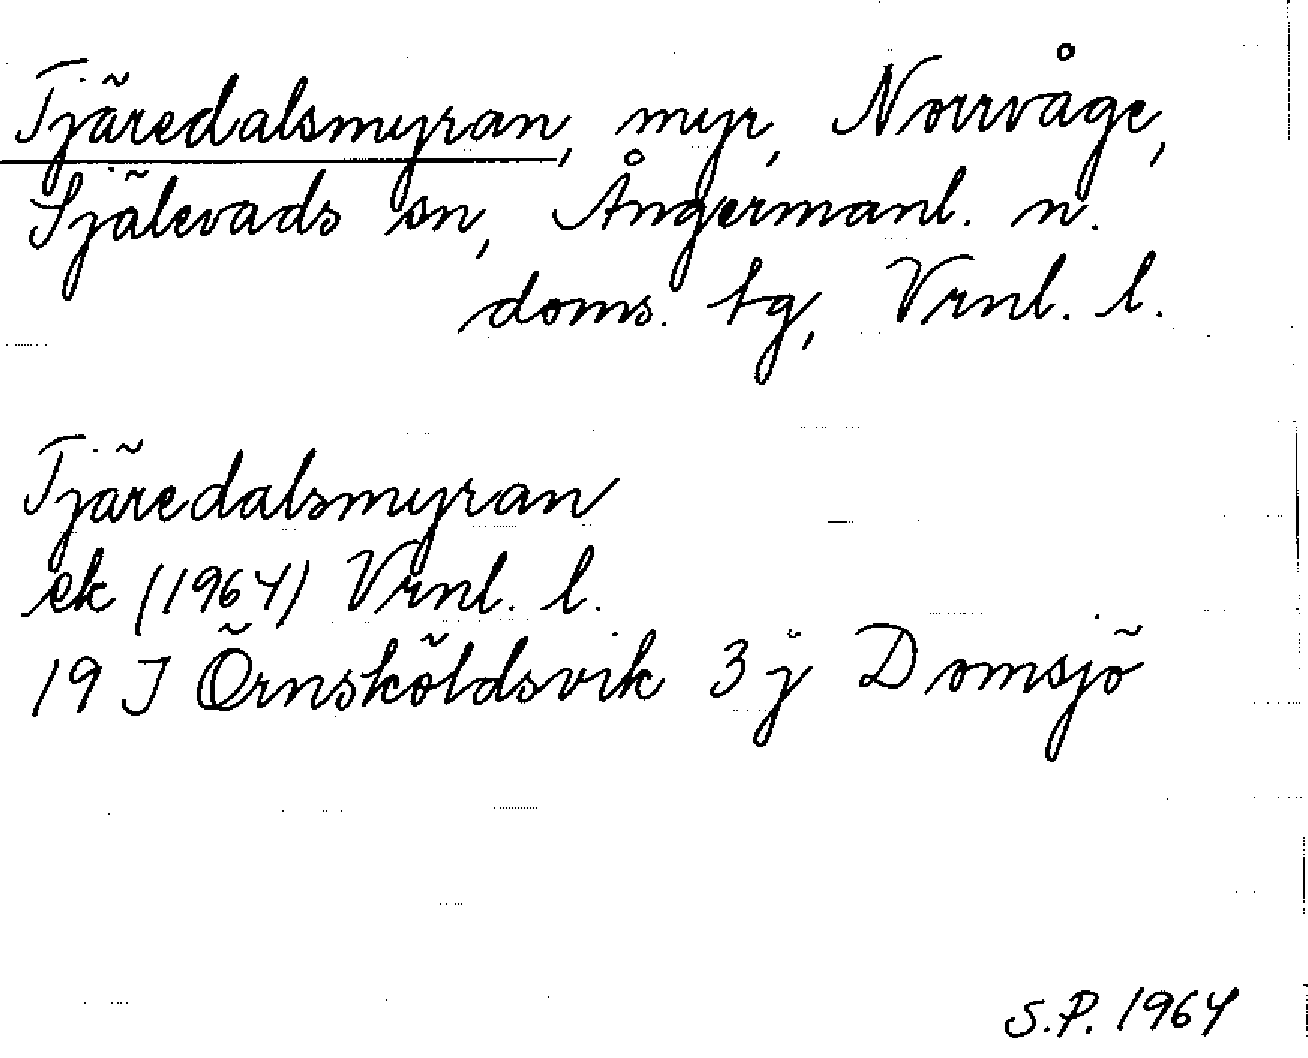 Tjäredalsmyran, myr, Norrvåge,
Själevads sn, Ångermanl. n.
doms. tg, Vrnl. l.
Tjäredalsmyran
ek (1964) Vrnl. l.
19 J Örnsköldsvik 3 j Domsjö
S.P. 1964